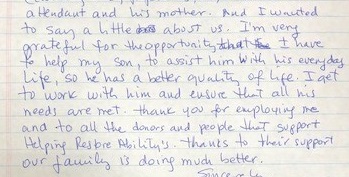 attendant and his mother. And I wanted
to say a little about us. I'm very
grateful for the opportunity I have
to help my son, to assist him with his everyday
Life, so he has a better quality of life. I get
to work with him and ensure that all his
needs are met. thank you for employing me
and to all the donors and people that support
Helping Restore Ability's. thanks to their support
our family is doing much better.